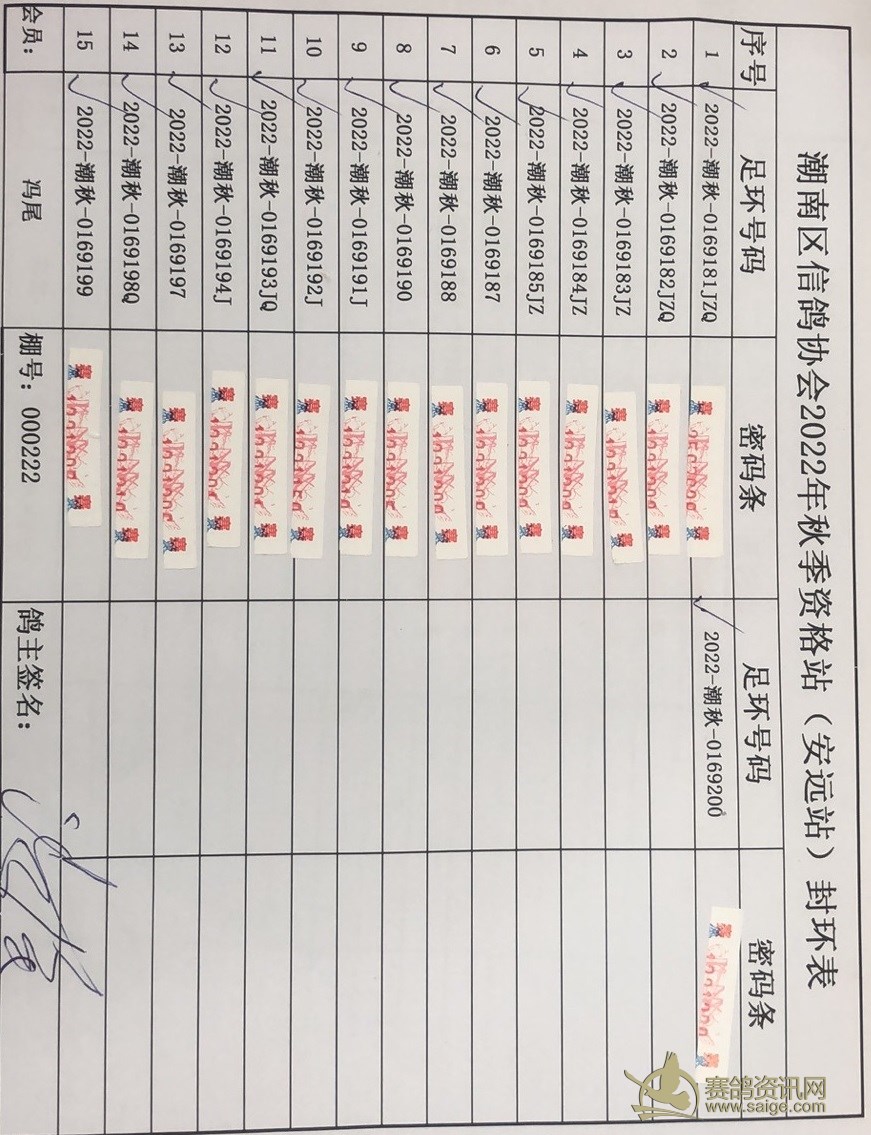 潮南区信鸽协会2022年秋季资格站（安远站）封环表
序号 足环号码 密码条 足环号码 密码条
1 2022-潮秋-0169181JZQ 2022-潮秋-0169200
2 2022-潮秋-0169182JZQ
3 2022-潮秋-0169183JZ
4 2022-潮秋-0169184JZ
5 2022-潮秋-0169185JZ
6 2022-潮秋-0169187
7 2022-潮秋-0169188
8 2022-潮秋-0169190
9 2022-潮秋-0169191J
10 2022-潮秋-0169192J
11 2022-潮秋-0169193JQ
12 2022-潮秋-0169194J
13 2022-潮秋-0169197
14 2022-潮秋-0169198Q
15 2022-潮秋-0169199
会员： 冯尾 棚号：000222 鸽主签名：
赛鸽资讯网
www.saige.com